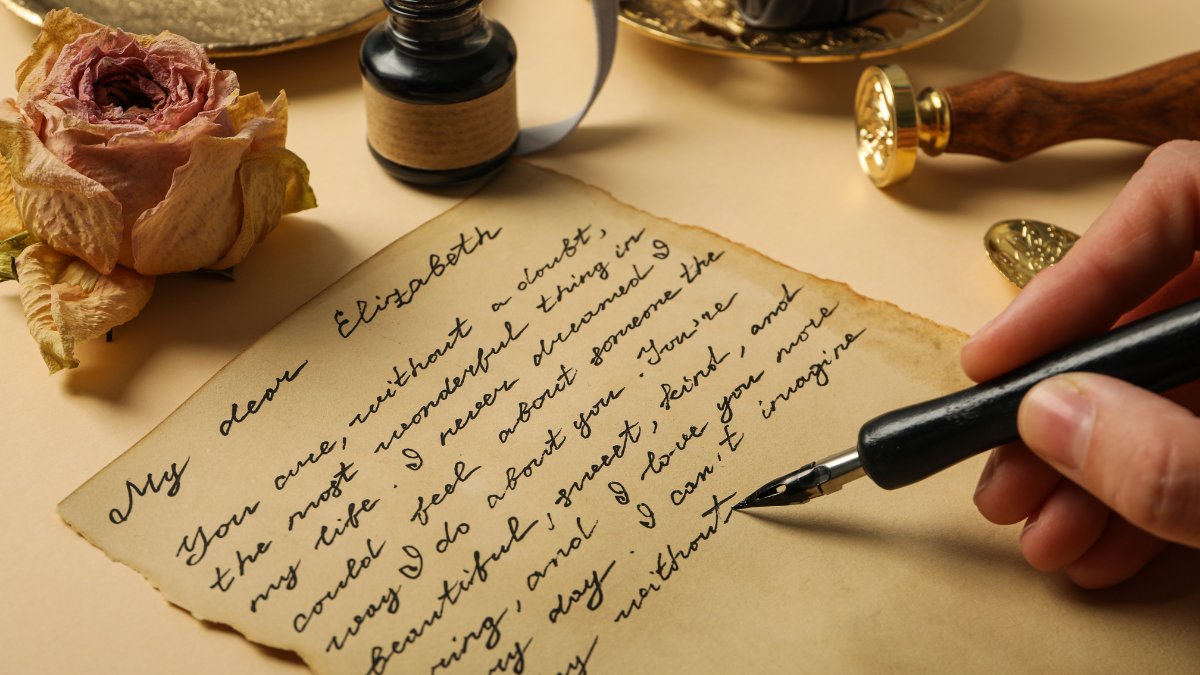 My dear Elizabeth
You are, without a doubt,
the most wonderful thing in
my life. I never dreamed I
could feel about someone the
way I do about you. You're
beautiful, sweet, kind, and
ring, and I love you more
ry day. I can't imagine
y without